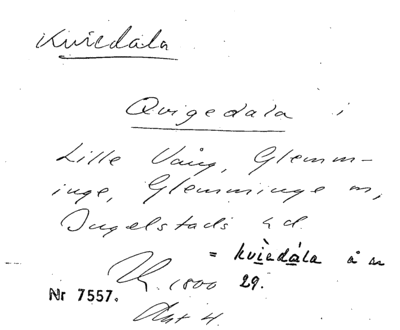 Kviedala
Qvigedala i
Lille Vång, Glemm-
inge, Glemminge sn,
Ingelstads hd.
= kvìedála å sn
1800 29.
Nr 7557.
Akt 4.